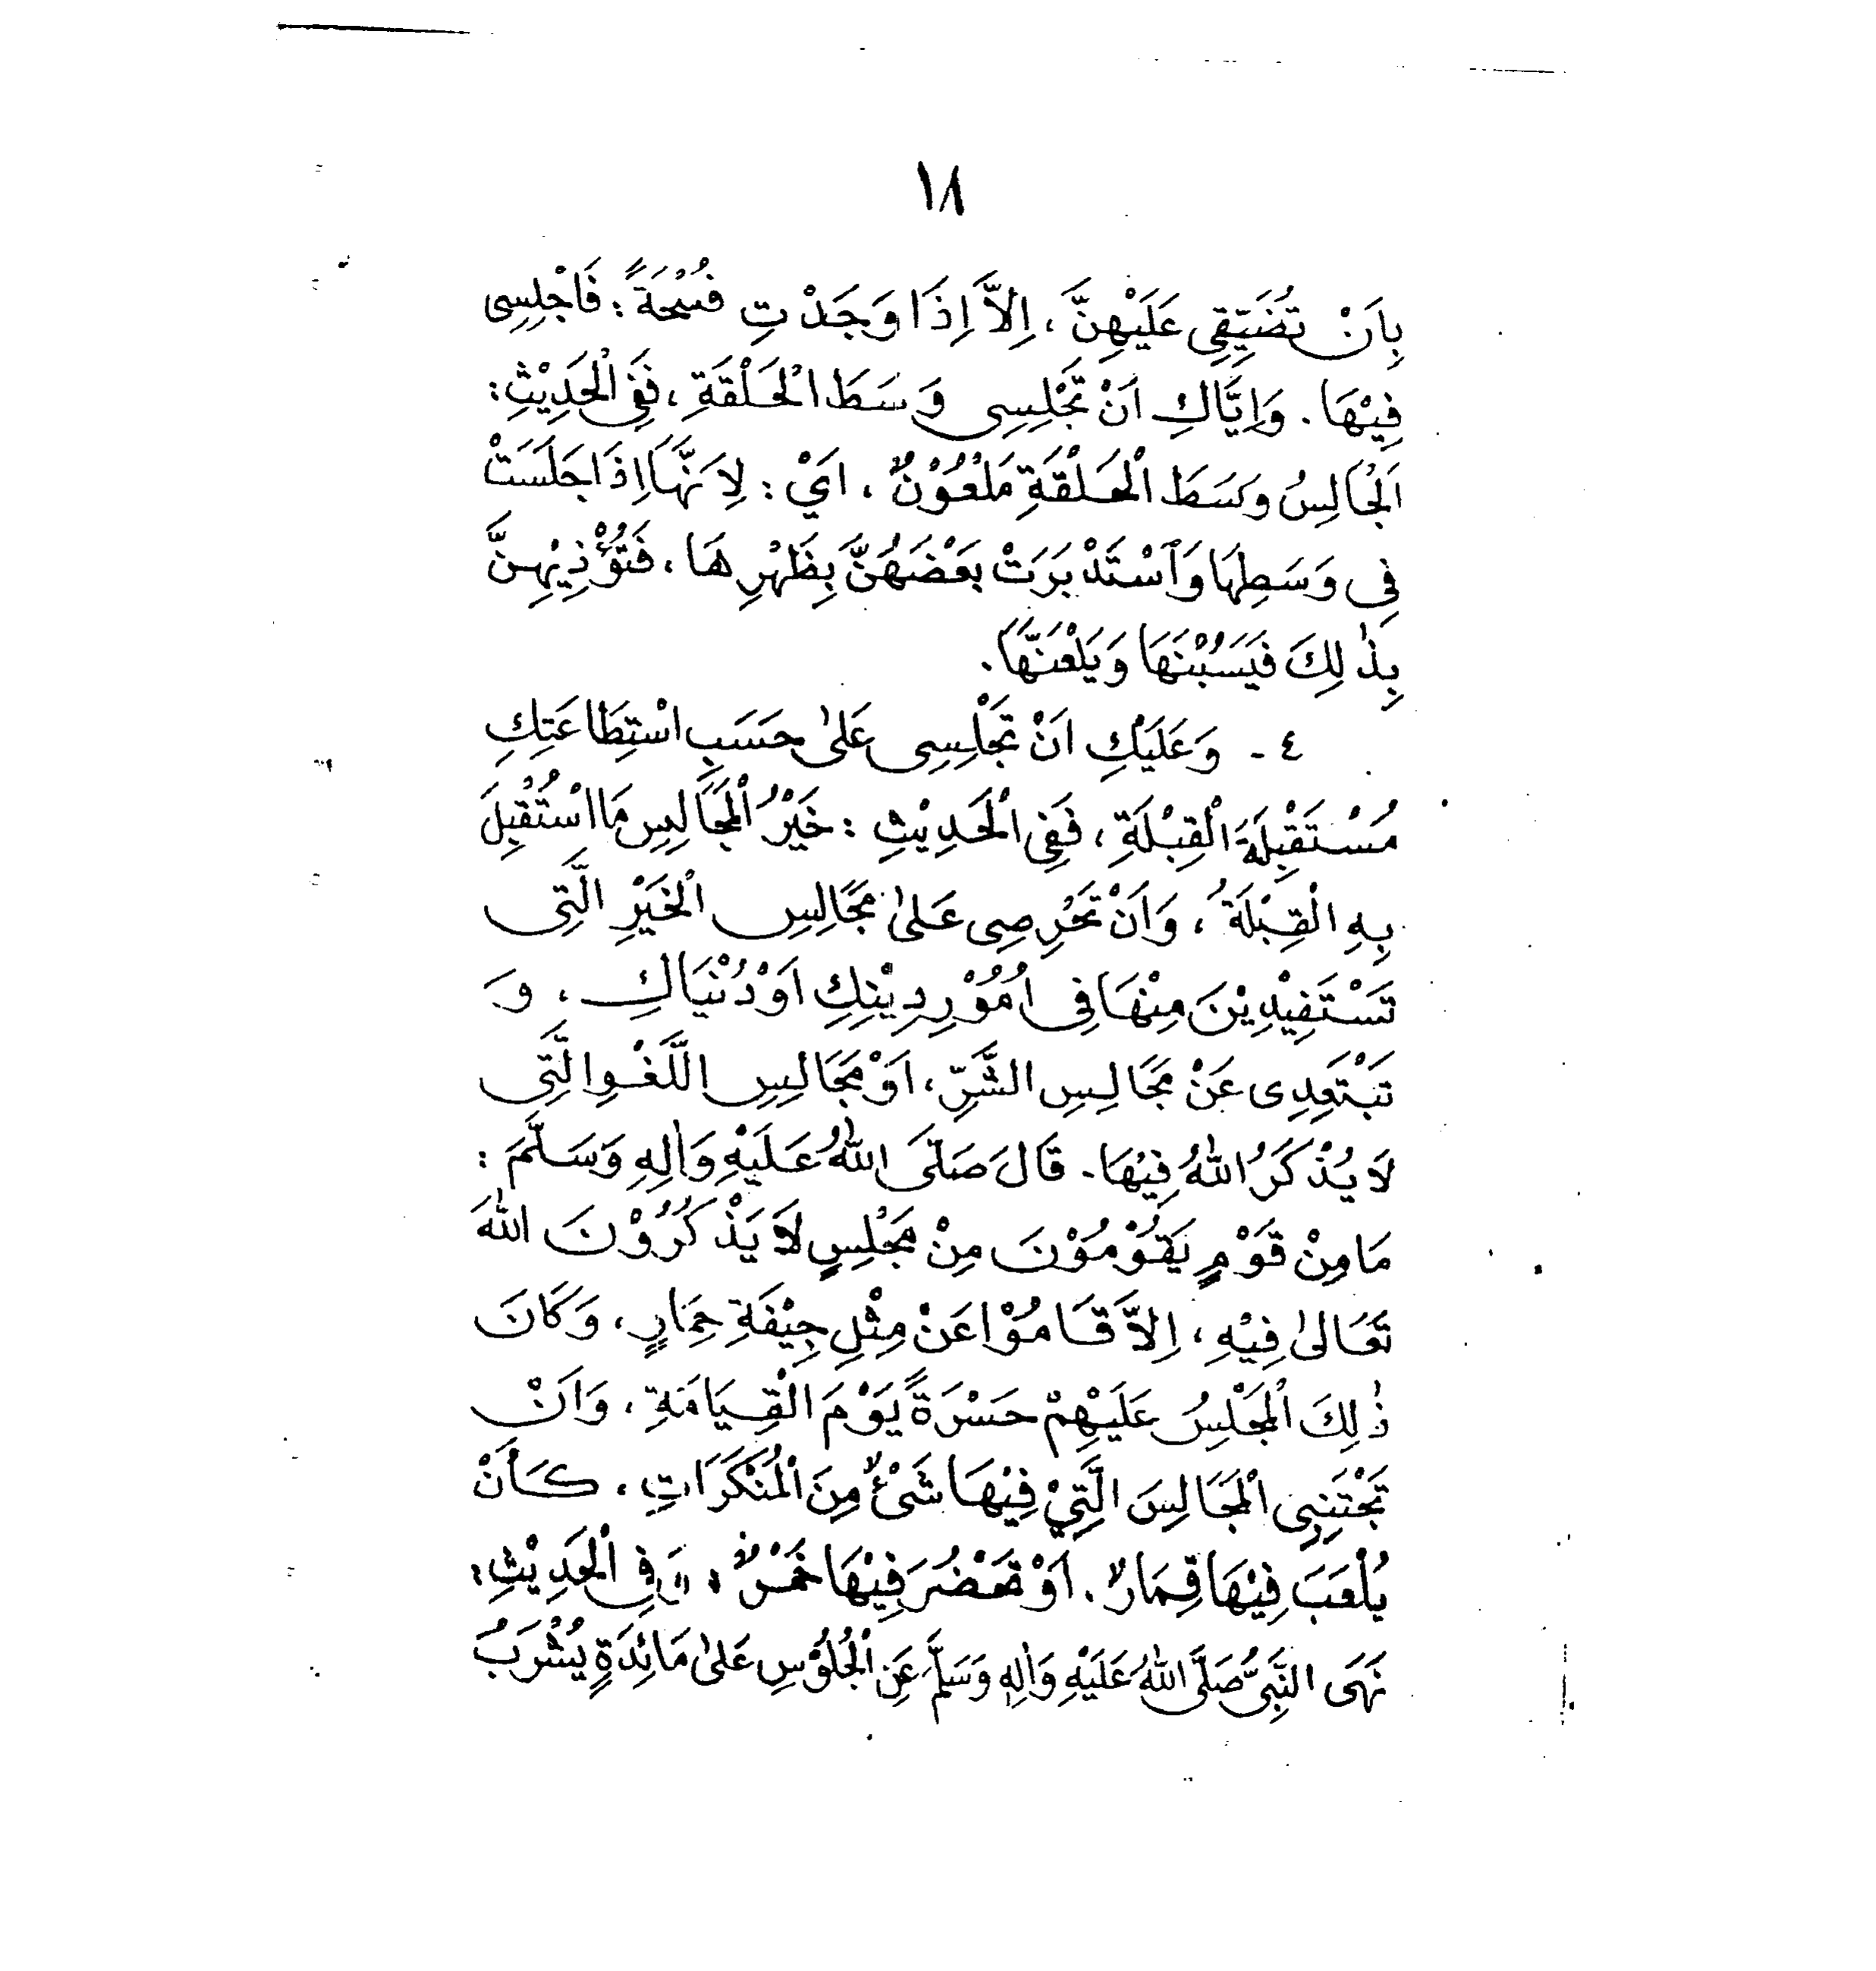 ١٨
بِاَنْ تُضَيِّقِى عَلَيْهِنَّ ، اِلاَّ اِذَا وَجَدْتِ فُسْحَةً : فَاجْلِسِى
فِيْهَا . وَاِيَّاكِ اَنْ تَجْلِسِى وَسَطَ الْحَلْقَةِ ، فَفِى الْحَدِيْثِ :
اَلْجَالِسُ وَسَطَ الْحَلْقَةِ مَلْعُوْنٌ ، اَىْ : لِاَنَّهَا اِذَا جَلَسَتْ
فِى وَسَطِهَا وَاسْتَدْبَرَتْ بَعْضَهُنَّ بِظَهْرِهَا ، فَتُؤْذِيْهِنَّ
بِذٰلِكَ فَيَسُبْنَهَا وَيَلْعَنَّهَا .
٤ - وَعَلَيْكِ اَنْ تَجْلِسِى عَلىٰ حَسَبِ اسْتِطَاعَتِكِ
مُسْتَقْبِلَةَ الْقِبْلَةِ ، فَفِى الْحَدِيْثِ : خَيْرُ الْمَجَالِسِ مَا اسْتُقْبِلَ
بِهِ الْقِبْلَةُ ، وَاَنْ تَحْرِصِى عَلىٰ مَجَالِسِ الْخَيْرِ الَّتِى
تَسْتَفِيْدِيْنَ مِنْهَا فِى اُمُوْرِ دِيْنِكِ اَوْ دُنْيَاكِ ، وَ
تَبْتَعِدِى عَنْ مَجَالِسِ الشَّرِّ ، اَوْ مَجَالِسِ اللَّغْوِ الَّتِى
لاَ يُذْكَرُ اللهُ فِيْهَا . قَالَ صَلَّى اللهُ عَلَيْهِ وَاٰلِهِ وَسَلَّمَ :
مَا مِنْ قَوْمٍ يَقُوْمُوْنَ مِنْ مَجْلِسٍ لاَ يَذْكُرُوْنَ اللهَ
تَعَالىٰ فِيْهِ ، اِلاَّ قَامُوْا عَنْ مِثْلِ جِيْفَةِ حِمَارٍ ، وَكَانَ
ذٰلِكَ الْمَجْلِسُ عَلَيْهِمْ حَسْرَةً يَوْمَ الْقِيَامَةِ ، وَاَنْ
تَجْتَنِبِى الْمَجَالِسَ الَّتِيْ فِيْهَا شَىْءٌ مِنَ الْمُنْكَرَاتِ ، كَأَنْ
يُلْعَبَ فِيْهَا قِمَارٌ ، اَوْ تَحْضُرَ فِيْهَا خَمْرٌ ، فَفِى الْحَدِيْثِ :
نَهَى النَّبِىُّ صَلَّى اللهُ عَلَيْهِ وَاٰلِهِ وَسَلَّمَ عَنِ الْجُلُوْسِ عَلىٰ مَائِدَةٍ يُشْرَبُ